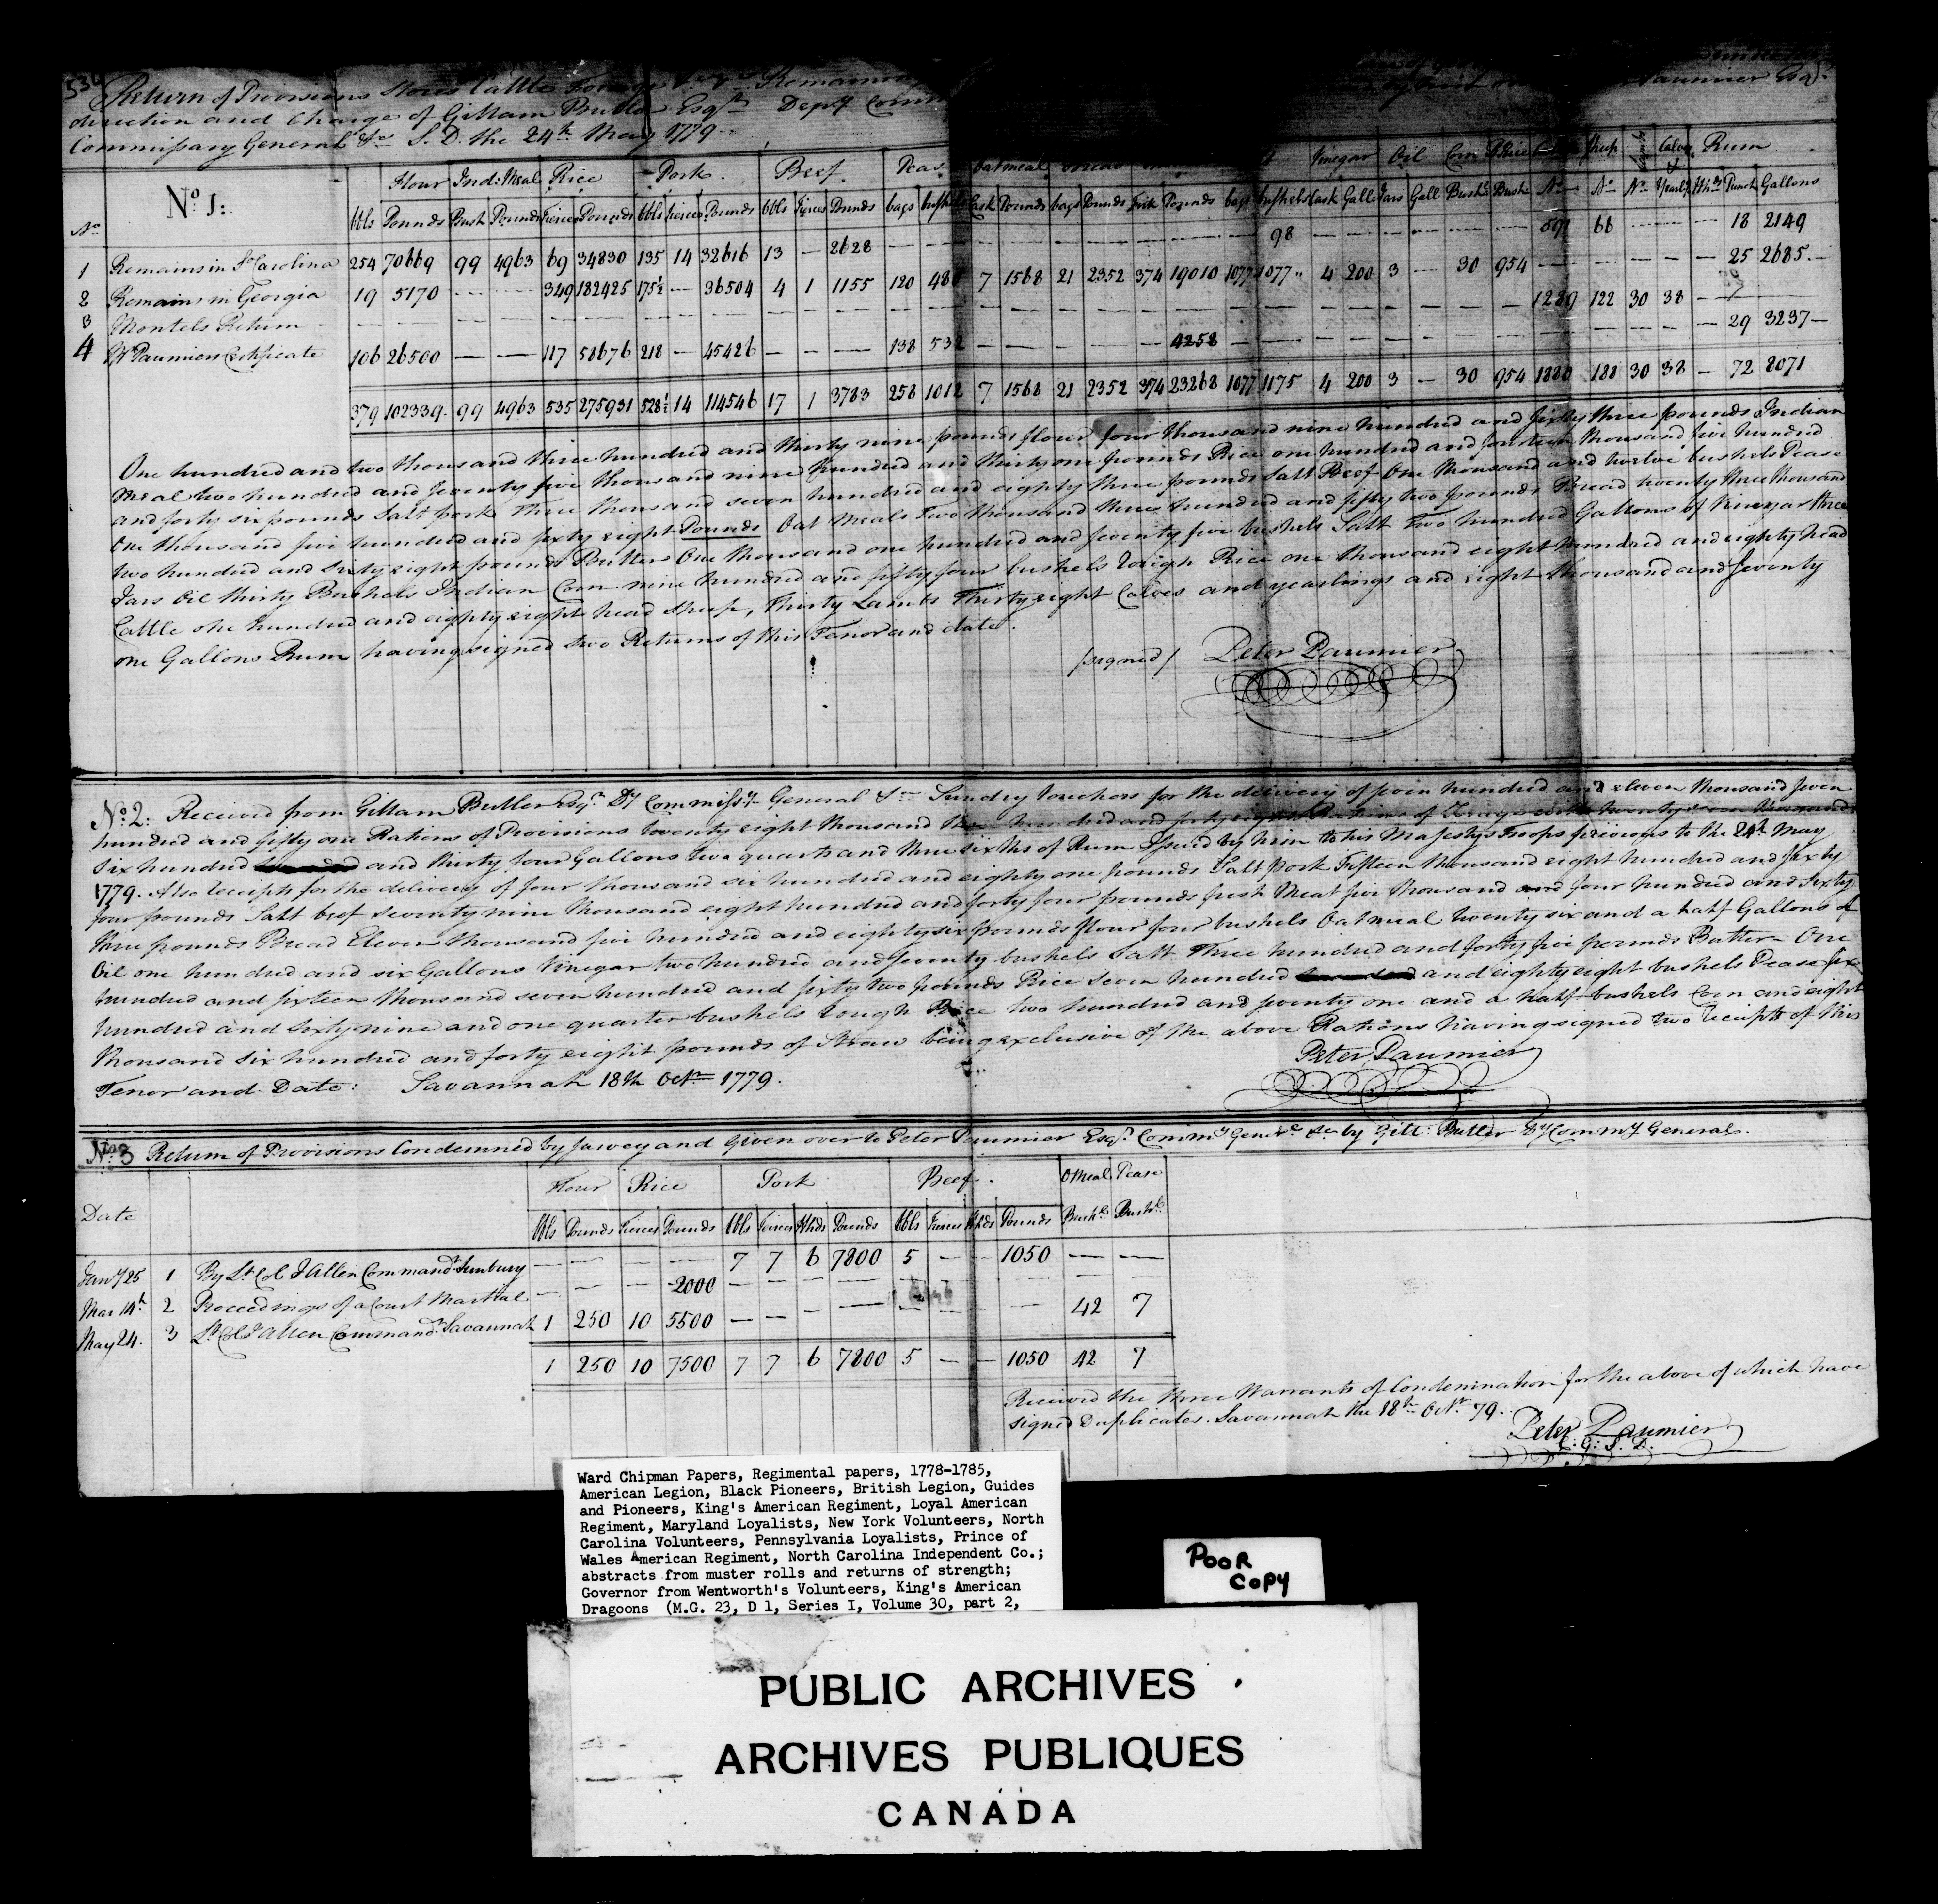 Return of Provisions Stores Cattle Forage Remaining
direction and Charge of Gillam Butler Esqr Depy Comm Paumier Esqr
Commissary General &ca S. D. the 24th May 1779.
No 1:
Flour Ind: Meal Rice Pork Beef Peas Oatmeal Bread Vinegar Oil Corn R Rice Sheep Lambs Calves & Rum
No bbls Pounds Bush Pounds Tierces Pounds bbls Tierces Pounds bbls Tierces Pounds bags bushels Cask Pounds bags Pounds Firk Pounds bags bushels Cask Galls Jars Gall Bushs Bush No No No Yearlgs Hhds Punch Gallons
1 Remains in So Carolina 254 70669 99 4963 69 34830 135 14 32616 13 — 2628 — — — — — — — — — 98 — — — — — — 591 66 — — — 18 2149
2 Remains in Georgia 19 5170 — — 349 182425 175½ — 36504 4 1 1155 120 480 7 1568 21 2352 374 19010 1077 1077 4 200 3 — 30 954 — — — — — 25 2685
3 Montels Return — — — — — — — — — — — — — — — — — — — — — — — — — — — — 1289 122 30 38 — —
4 Mr Paumiers Certificate 106 26500 — — 117 58676 218 — 45426 — — — 138 532 — — — — — 4258 — — — — — — — — — — — — — 29 3237
379 102339 99 4963 535 275931 528½ 14 114546 17 1 3783 258 1012 7 1568 21 2352 374 23268 1077 1175 4 200 3 — 30 954 1880 188 30 38 — 72 8071
One hundred and two thousand three hundred and thirty nine pounds flour four thousand nine hundred and sixty three pounds Indian
Meal two hundred and seventy five thousand nine hundred and thirty one pounds Rice one hundred and fourteen thousand five hundred
and forty six pounds Salt pork Three thousand seven hundred and eighty three pounds Salt Beef One thousand and twelve bushels Pease
One thousand five hundred and sixty eight Pounds Oat Meal Two thousand three hundred and fifty two pounds Bread twenty three thousand
two hundred and sixty eight pounds Butter One thousand one hundred and seventy five bushels Salt Two hundred Gallons of Vinegar three
Jars Oil thirty Bushels Indian Corn nine hundred and fifty four bushels Rough Rice one thousand eight hundred and eighty head
Cattle one hundred and eighty eight head Sheep, Thirty Lambs Thirty eight Calves and yearlings and eight thousand and seventy
one Gallons Rum having signed two Returns of this Tenor and date.
/signed/ Peter Paumier
No 2: Received from Gillam Butler Esqr Dy Commissy General &ca Sundry Vouchers for the delivery of hundred and eleven thousand seven
hundred and fifty one Rations of Provisions twenty eight thousand hundred and forty eight Rations of Forage with twenty seven thousand
six hundred and thirty four Gallons two quarts and three sixths of Rum Issued by him to his Majestys Troops previous to the 24th May
1779. Also Receipts for the delivery of four thousand six hundred and eighty one pounds Salt Pork Fifteen thousand eight hundred and sixty
four pounds Salt beef seventy nine thousand eight hundred and forty four pounds fresh Meat five thousand and four hundred and Sixty
three pounds Bread Eleven thousand five hundred and eighty six pounds flour four bushels Oatmeal twenty six and a half Gallons of
Oil one hundred and six Gallons Vinegar two hundred and seventy bushels Salt Three hundred and forty five pounds Butter One
hundred and sixteen thousand seven hundred and sixty two pounds Rice Seven hundred and eighty eight bushels Pease Six
hundred and Sixty nine and one quarter bushels Rough Rice two hundred and seventy one and a half bushels Corn and eight
thousand six hundred and forty eight pounds of Straw being exclusive of the above Rations having signed two Receipts of this
Tenor and Date: Savannah 18th Octr 1779.
Peter Paumier
No 3 Return of Provisions Condemned by Survey and Given over to Peter Paumier Esqr Commy Generl &ca by Gill: Butler Dy Commy General.
Flour Rice Pork Beef OMeal Pease
Date bbls Pounds Tierces Pounds bbls Tierces Hhds Pounds bbls Tierces Hhds Pounds Bushls Bushls
Jany 25 1 By Lt Col I Allen Commandt Sunbury — — — — 7 7 6 7800 5 — — 1050 — —
Mar 14th 2 Proceedings of a Court Martial — — — 2000 — — — — — — — — — —
May 24. 3 Lt Col I Allen Commandt Savannah 1 250 10 5500 — — — — — — — — 42 7
1 250 10 7500 7 7 6 7800 5 — — 1050 42 7
Received the three Warrants of Condemnation for the above of which have
signed Duplicates. Savannah the 18th Octr 79.
Peter Paumier
C: G: S. D.
Ward Chipman Papers, Regimental papers, 1778-1785,
American Legion, Black Pioneers, British Legion, Guides
and Pioneers, King's American Regiment, Loyal American
Regiment, Maryland Loyalists, New York Volunteers, North
Carolina Volunteers, Pennsylvania Loyalists, Prince of
Wales American Regiment, North Carolina Independent Co.;
abstracts from muster rolls and returns of strength;
Governor from Wentworth's Volunteers, King's American
Dragoons (M.G. 23, D 1, Series I, Volume 30, part 2,
POOR
COPY
PUBLIC ARCHIVES
ARCHIVES PUBLIQUES
CANADA